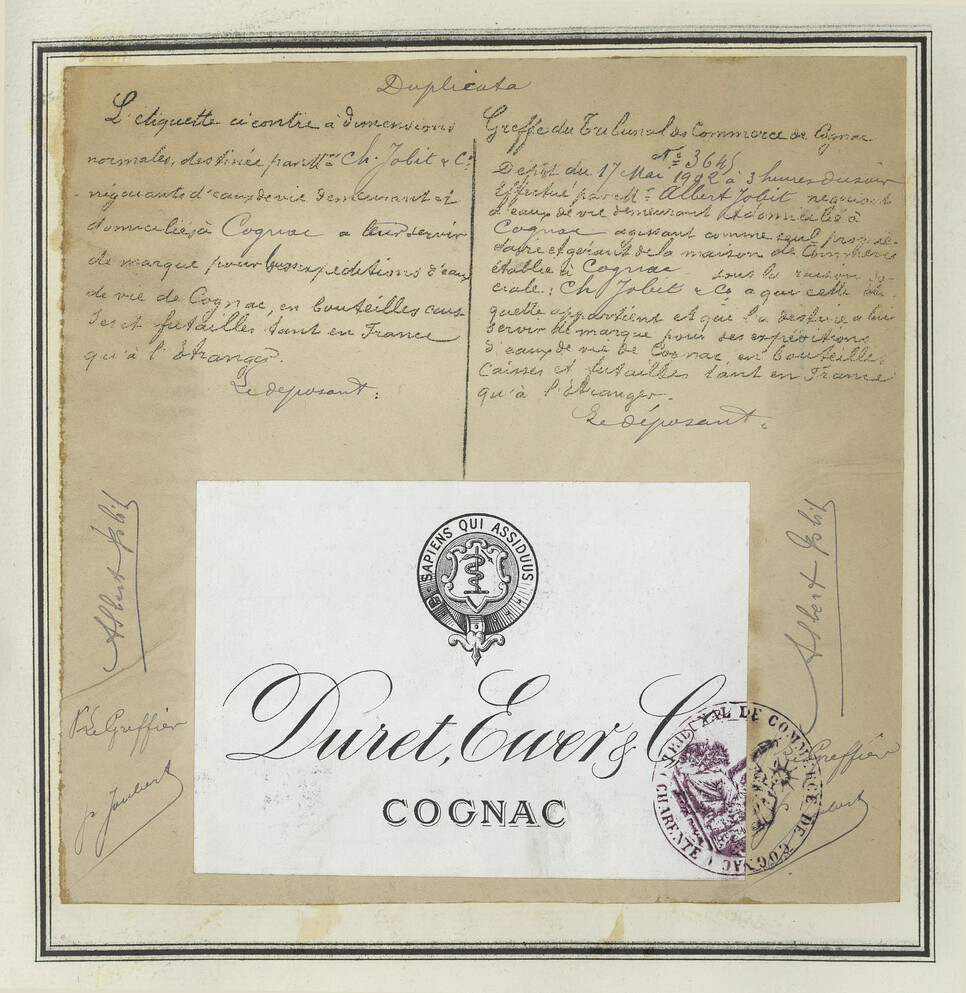 Duplicata
L'étiquette ci contre à dimensions
normales, destinée par Mrs Ch. Jobit & Cie
négociants d'eaux de vie demeurant et
domiciliés à Cognac a leur servir
de marque pour leurs expéditions d'eaux
de vie de Cognac, en bouteilles cais
ses et futailles tant en France
qu'à l'Etranger.
Le déposant:
Greffe du Tribunal de Commerce de Cognac
No 3645
Dépôt du 17 Mai 1902 à 3 heures du soir
Effectué par Mr Albert Jobit négociant
d'eaux de vie demeurant et domicilié à
Cognac agissant comme seul proprié-
taire et gérant de la maison de Commerce
établie à Cognac sous la raison so-
ciale: Ch Jobit & Co a qui cette éti-
quette appartient et qui l'a destinée a lui
servir de marque pour ses expéditions
d'eaux de vie de Cognac en bouteilles
Caisses et futailles tant en France
qu'à l'Etranger.
Le déposant:
Albert Jobit
Albert Jobit
Le Greffier
J. Joubert
Le Greffier
SAPIENS QUI ASSIDUUS
Duret, Ewer & Co
COGNAC
TRIBUNAL DE COMMERCE DE COGNAC (CHARENTE)